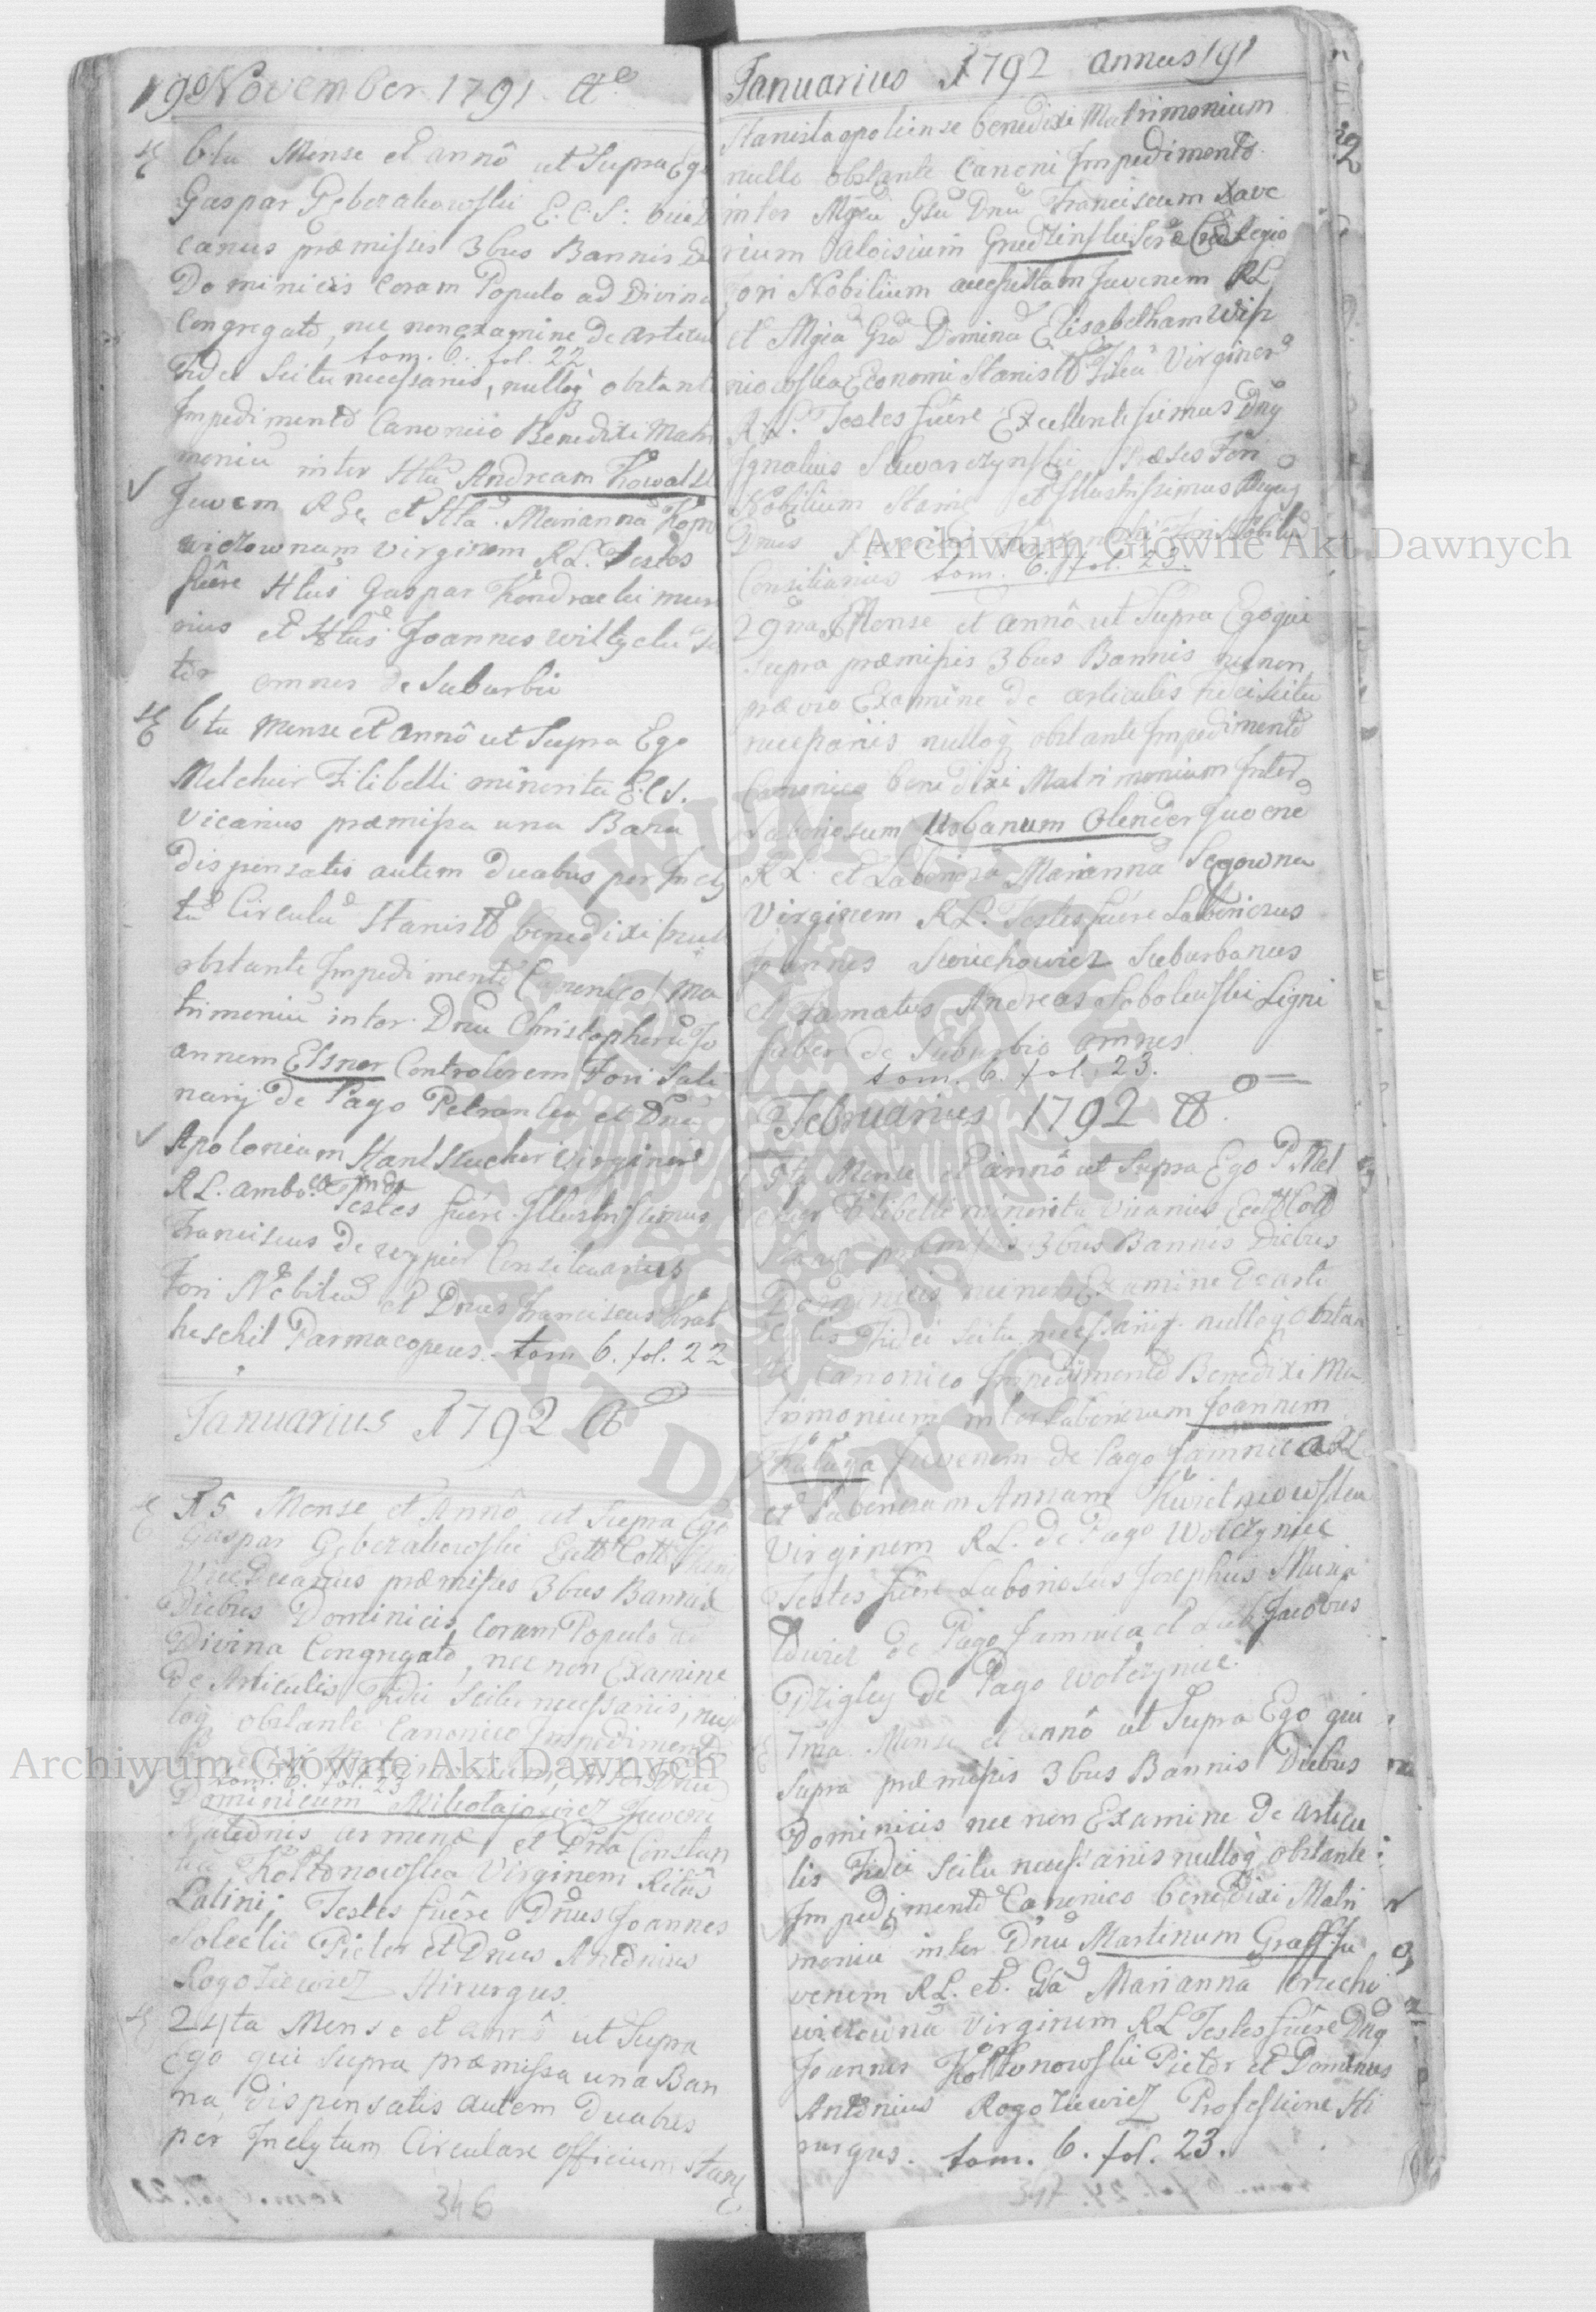 190 November 1791 A
6ta Mense et annô ut Supra Ego
Gaspar Gebezakowski E. C. S: vice
canus præmissis 3bus Bannis
Dominicis Coram Populo ad Divina
Congregato, nec non examine de articu
tom. 6. fol. 22
Fidei Scitu necessariis, nulloq obstante
Impedimento Canonico Benedixi Matri
moniũ inter Hlũ Andream Kowalsk
Juvem RL. et Hlã. Mariannã
wiczownam virginem RL. Testes
fuêre Hlus Gaspar Kondracki mura
rius et Hlus Joannes
tor omnes de Suburbii
6ta Mense et Annô ut Supra Ego
Melchior Filibelli minorita E.C.S.
Vicarius præmissa una Bana
Dispensatis autem Duabus per Incly
tũ Circulũ Stanisl benedixi null
obstante Impedimento Canonico ma
trimoniũ inter Dnũ Christopherũ Jo
annem Elsner Controlorem Fori Sali
narij de Pago Petranka et Dnã
Apoloniam Hanlslucher Virginem
RL. ambo
Testes fuêre Illustrissimus
Franciscus De Consiliarius
Fori Nobiliũ et Dnus Franciscus Krat
heschil Parmacopeus. tom 6. fol. 22
Januarius 1792 A
15 Mense et Annô ut Supra Ego
Gaspar Gebezakowski
ViceDecanus præmissis 3bus Bannis
Diebus Dominicis, Coram Populo ad
Divina Congregato, nec non Examine
De Articulis Fidei Scitu necessariis, nul
loq obstante Canonico Impedimento
tom. 6. fol. 23
Dominicum Mikołajowicz Juvene
Natednis armena, et Dnã Constan
tiã Kołtonowska Virginem Ritûs
Latini; Testes fuêre Dnus Joannes
Solecki Pictor et Dnus Antonius
Rogoziewicz Hirurgus.
24ta Mense et annô ut Supra
Ego qui Supra præmissa una Ban
na, dispensatis autem Duabus
per Inclytum Circulare officium Stani
346
Januarius 1792 annus 191
Stanislaopoliense benedixi Matrimonium
nullo obstante Canoni Impedimento
inter Mgcũ Gsũ Dnũ Franciscum Xave
rium Aloisium Grudzinski
Fori Nobilium accessistam Juvenem RL
et Mgcã Gsã Dominã Elisabetham Wisz
niowska Economi Stanisl Filiã Virginem
RL. Testes fuêre Excellentissimus Dnus
Ignatius Skwarczynski Præses Fori
Nobilium Stanis et Illustrissimus
Dnus Fori Nobiliũ
Consiliarius tom. 6. fol. 23.
29na Mense et annô ut Supra Ego qui
Supra præmissis 3bus Bannis necnon
prævio Examine de articulis Fidei Scitu
necessariis nulloq obstante Impedimento
Canonico benedixi Matrimonium Inter
Laboriosum Urbanum Olender Juvene
RL. et Laboriosã Mariannã Segowna
Virginem RL. Testes fuêre Laboriosus
Joannes Swichowicz Suburbanus
et Famatus Andreas Sobolewski Ligni
faber de Suburbio omnes
tom. 6. fol. 23.
Februarius 1792 A
5ta Mense et annô ut Supra Ego P. Mel
chior Filibelli minorita Vicarius
præmissis 3bus Bannis Diebus
Dominicis necnon Examine De arti
culis Fidei Scitu necessarijs nulloq obstan
te Canonico Impedimento Benedixi Ma
trimonium inter Laboriosum Joannem
Kuługa Juvenem de Pago Jamnica RL
et Laboriosam Annam Kwiatkowska
Virginem RL. de Pago Wołczyniec
Testes fuêre Laboriosus Josephus
de Pago Jamnica et Lab: Jacobus
Dzigley de Pago Wołczyniec.
7ma Mense et annô ut Supra Ego qui
Supra præmissis 3bus Bannis Diebus
Dominicis nec non Examine de articu
lis Fidei Scitu necessariis nulloq obstante
Impedimento Canonico benedixi Matri
moniũ inter Dnũ Martinum Graff Ju
venem RL. et Gsã Mariannã
wiczownã Virginem RL Testes fuêre Dnus
Joannes Kołtonowski Pictor et Dominus
Antonius Rogoziewicz Professione Hi
rurgus. tom. 6. fol. 23.
347
Archiwum Główne Akt Dawnych
Archiwum Główne Akt Dawnych
ARCHIWUM GŁÓWNE
AKT DAWNYCH